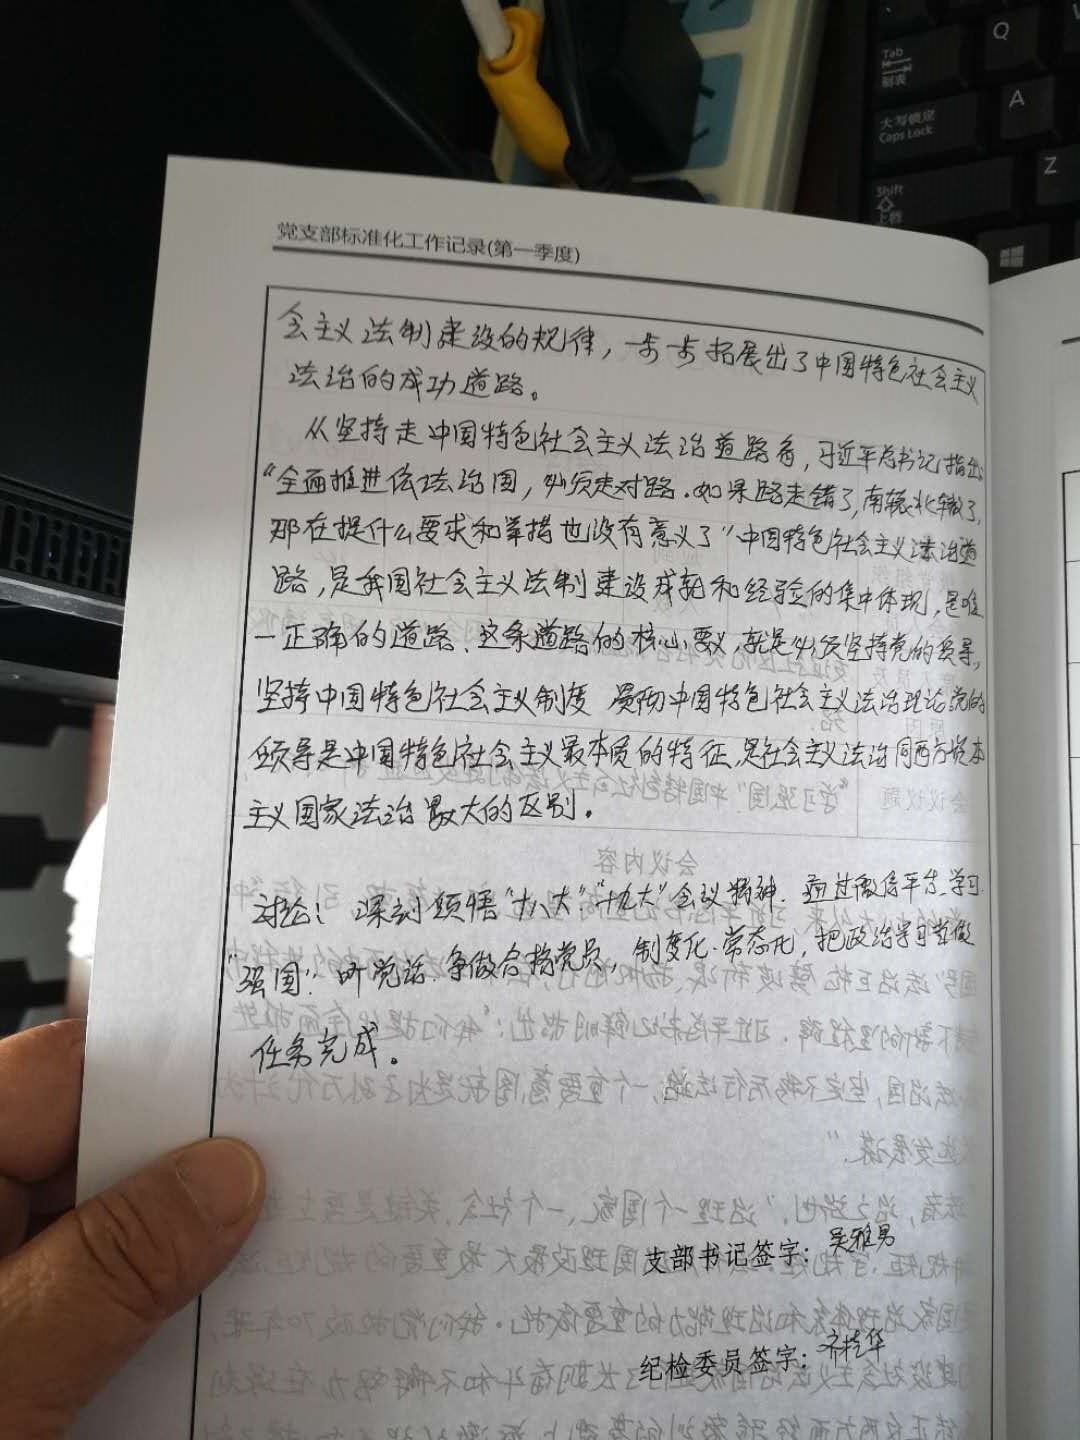 党支部标准化工作记录(第一季度)
会主义法制建设的规律，一步一步拓展出了中国特色社会主义
法治的成功道路。
从坚持走中国特色社会主义法治道路看，习近平总书记指出：
“全面推进依法治国，必须走对路．如果路走错了，南辕北辙了，
那在提什么要求和举措也没有意义了”中国特色社会主义法治道
路，是我国社会主义法制建设成就和经验的集中体现，是唯
一正确的道路、这条道路的核心要义，就是必须坚持党的领导，
坚持中国特色社会主义制度 贯彻中国特色社会主义法治理论 党的
领导是中国特色社会主义最本质的特征，是社会主义法治同西方资本
主义国家法治最大的区别。
讨论：深刻领悟“十八大”“十九大”会议精神．通过微信平台、学习
“强国”．听党话．争做合格党员，制度化·常态化，把政治学习当做
任务完成。
支部书记签字：吴雅男
纪检委员签字：齐桂华
Tab
大写锁定
Caps Lock
Shift
Q
A
Z